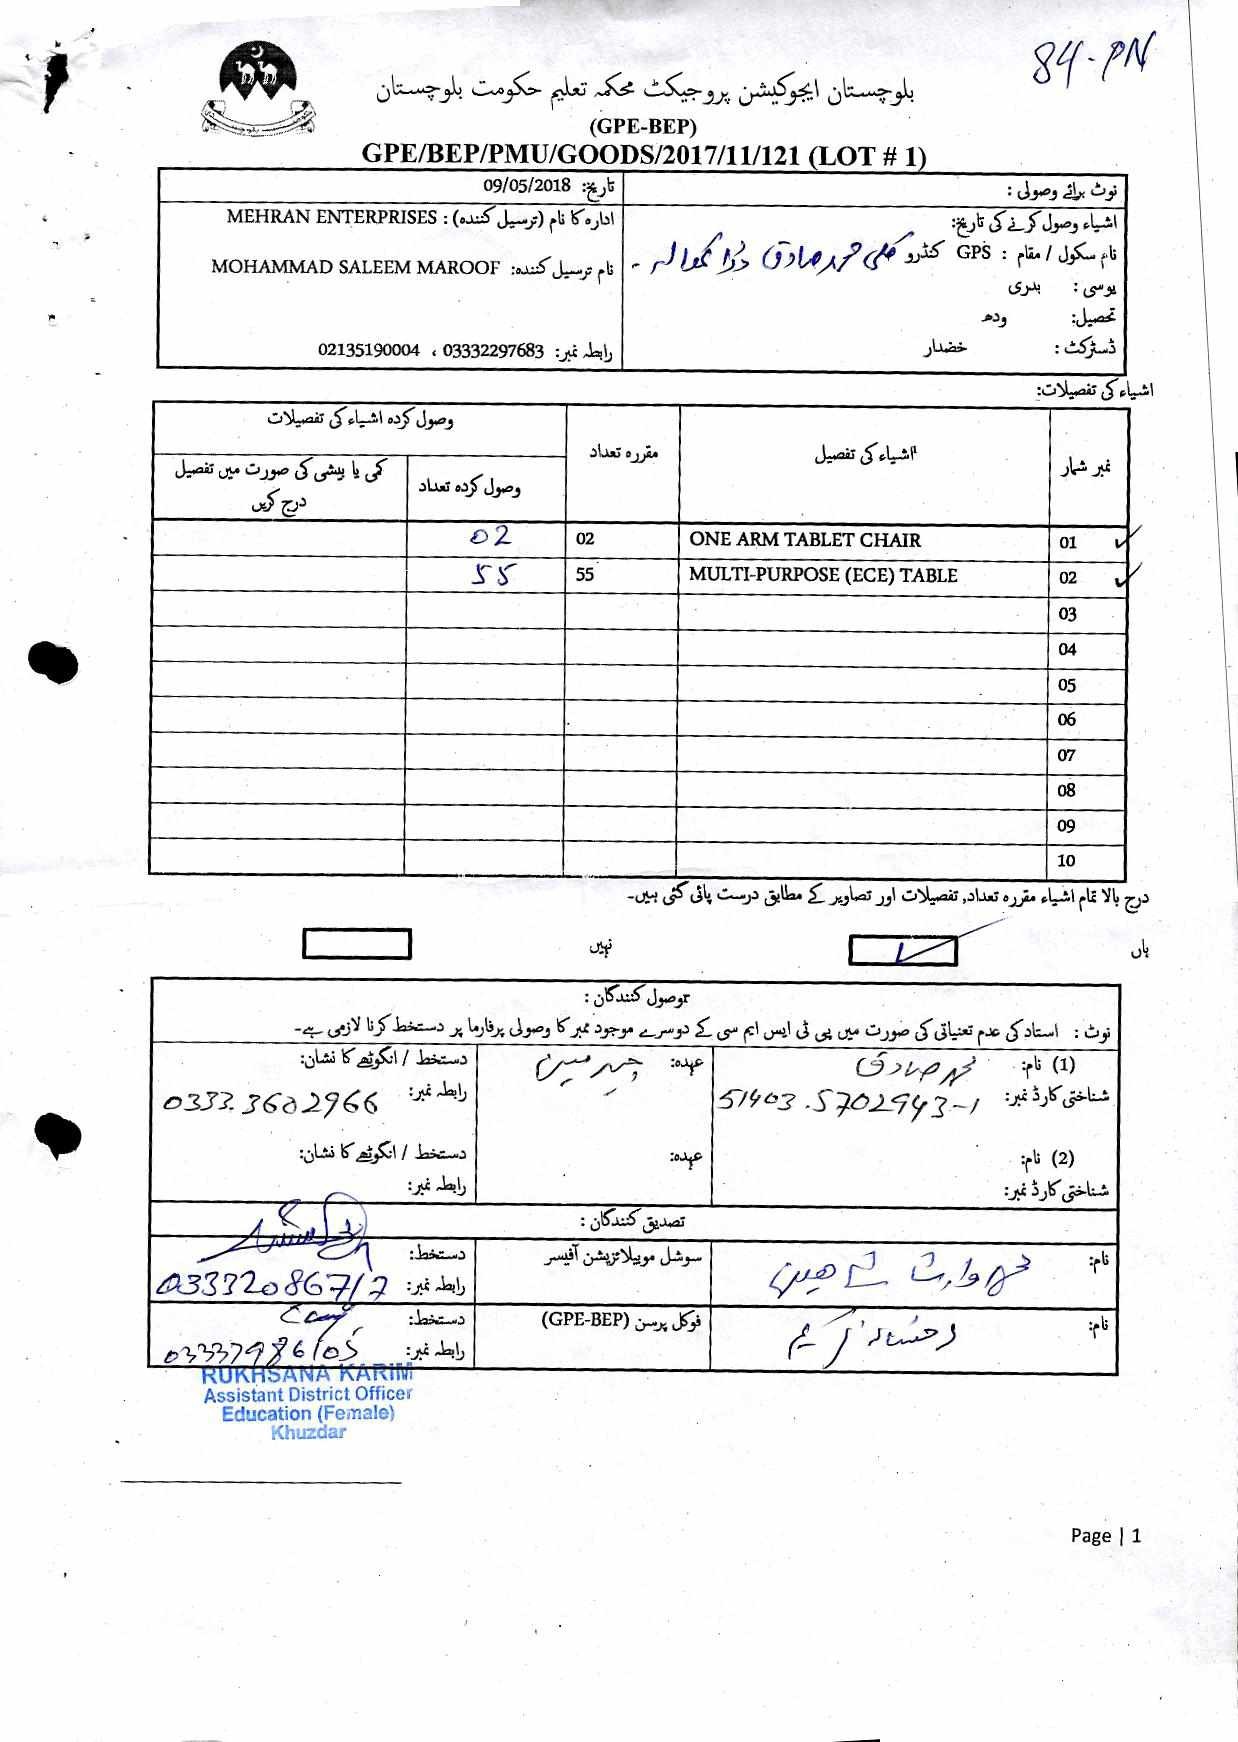 84-PN
بلوچستان ایجوکیشن پروجیکٹ محکمہ تعلیم حکومت بلوچستان
(GPE-BEP)
GPE/BEP/PMU/GOODS/2017/11/121 (LOT # 1)
نوٹ برائے وصولی :
تاریخ: 09/05/2018
اشیاء وصول کرنے کی تاریخ:
نام سکول / مقام : GPS کنڈرو کلی محمد صادق
یوسی : بدری
تحصیل: ودھ
ڈسٹرکٹ : خضدار
ادارہ کا نام (ترسیل کنندہ) : MEHRAN ENTERPRISES
نام ترسیل کنندہ: MOHAMMAD SALEEM MAROOF
رابطہ نمبر: 03332297683 ، 02135190004
اشیاء کی تفصیلات:
نمبر شمار اشیاء کی تفصیل مقررہ تعداد وصول کردہ اشیاء کی تفصیلات
وصول کردہ تعداد کمی یا بیشی کی صورت میں تفصیل درج کریں
01 ONE ARM TABLET CHAIR 02 02
02 MULTI-PURPOSE (ECE) TABLE 55 55
03
04
05
06
07
08
09
10
درج بالا تمام اشیاء مقررہ تعداد, تفصیلات اور تصاویر کے مطابق درست پائی گئی ہیں۔
ہاں نہیں
وصول کنندگان :
نوٹ : استاد کی عدم تعنیاتی کی صورت میں پی ٹی ایس ایم سی کے دوسرے موجود ممبر کا وصولی پرفارما پر دستخط کرنا لازمی ہے۔
(1) نام: محمد صادق عہدہ: چیرمین دستخط / انگوٹھے کا نشان:
شناختی کارڈ نمبر: 51403.5702943-1 رابطہ نمبر: 0333.3602966
(2) نام: عہدہ: دستخط / انگوٹھے کا نشان:
شناختی کارڈ نمبر: رابطہ نمبر:
تصدیق کنندگان :
نام: محمد وارث شاھین سوشل موبیلائزیشن آفیسر دستخط:
رابطہ نمبر: 03332086717
نام: رخسانہ کریم فوکل پرسن (GPE-BEP) دستخط:
رابطہ نمبر: 03337986105
RUKHSANA KARIM
Assistant District Officer
Education (Female)
Khuzdar
Page | 1